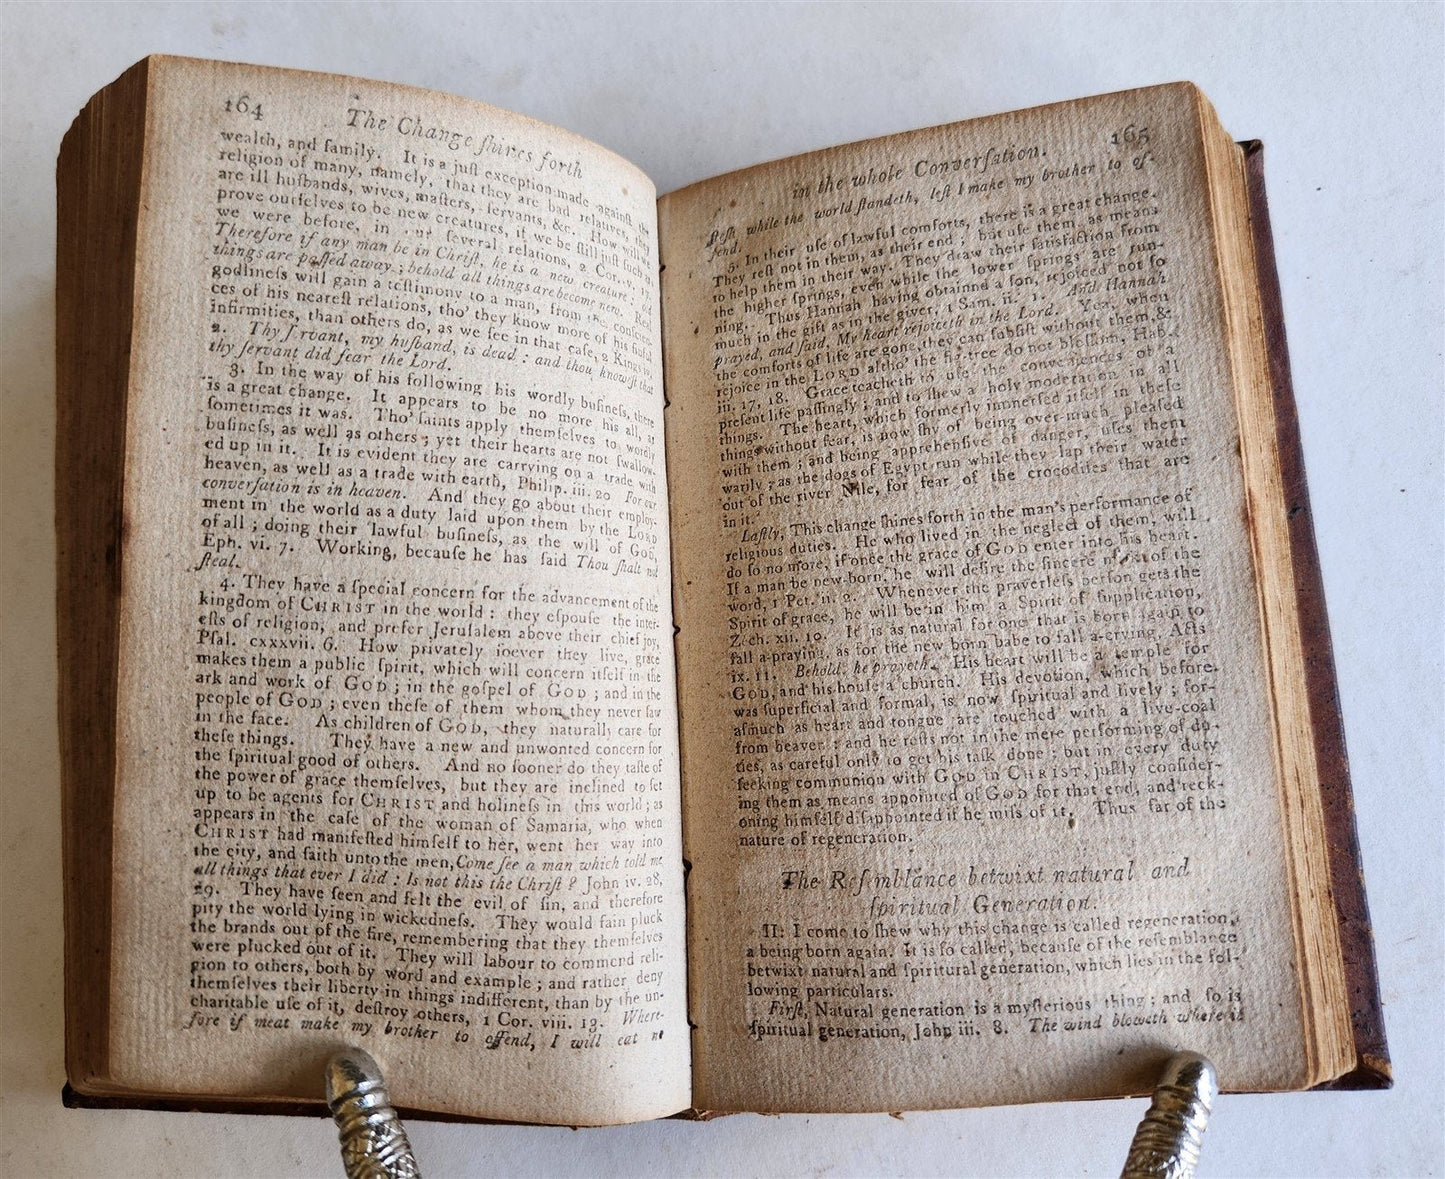 164
The Change ſhines forth
wealth, and family. It is a juſt exception made againſt the
religion of many, namely, that they are bad relatives, they
are ill huſbands, wives, maſters, ſervants, &c. How will we
prove ourſelves to be new creatures, if we be ſtill juſt ſuch as
we were before, in our ſeveral relations, 2 Cor. v. 17.
Therefore if any man be in Chriſt, he is a new creature: old
things are paſſed away; behold all things are become new. Real
godlineſs will gain a teſtimony to a man, from the conſcien-
ces of his neareſt relations, tho' they know more of his ſinful
infirmities, than others do, as we ſee in that caſe, 2 Kings iv.
Thy ſervant, my huſband, is dead: and thou knoweſt that
thy ſervant did fear the Lord.
3. In the way of his following his wordly buſineſs, there
is a great change. It appears to be no more his all, as
ſometimes it was. Tho' ſaints apply themſelves to wordly
buſineſs, as well as others; yet their hearts are not ſwallow-
ed up in it. It is evident they are carrying on a trade with
heaven, as well as a trade with earth, Philip. iii. 20 For our
converſation is in heaven. And they go about their employ-
ment in the world as a duty laid upon them by the LORD
of all; doing their lawful buſineſs, as the will of GOD,
Eph. vi. 7. Working, becauſe he has ſaid Thou ſhalt not
ſteal.
4. They have a ſpecial concern for the advancement of the
kingdom of CHRIST in the world: they eſpouſe the inter-
eſts of religion, and prefer Jeruſalem above their chief joy,
Pſal. cxxxvii. 6. How privately ſoever they live, grace
makes them a public ſpirit, which will concern itſelf in the
ark and work of GOD; in the goſpel of GOD; and in the
people of GOD; even theſe of them whom they never ſaw
in the face. As children of GOD, they naturally care for
theſe things. They have a new and unwonted concern for
the ſpiritual good of others. And no ſooner do they taſte of
the power of grace themſelves, but they are inclined to ſet
up to be agents for CHRIST and holineſs in this world; as
appears in the caſe of the woman of Samaria, who when
CHRIST had manifeſted himſelf to her, went her way into
the city, and ſaith unto the men, Come ſee a man which told me
all things that ever I did: Is not this the Chriſt? John iv. 28,
29. They have ſeen and felt the evil of ſin, and therefore
pity the world lying in wickedneſs. They would fain pluck
the brands out of the fire, remembering that they themſelves
were plucked out of it. They will labour to commend reli-
gion to others, both by word and example; and rather deny
themſelves their liberty in things indifferent, than by the un-
charitable uſe of it, deſtroy others, 1 Cor. viii. 13. Where-
fore if meat make my brother to offend, I will eat no
in the whole Converſation. 165
fleſh while the world ſtandeth, leſt I make my brother to of-
fend.
5. In their uſe of lawful comforts, there is a great change.
They reſt not in them, as their end; but uſe them as means
to help them in their way. They draw their ſatisfaction from
the higher ſprings, even while the lower ſprings are run-
ning. Thus Hannah having obtained a ſon, rejoiced not ſo
much in the gift as in the giver, 1 Sam. ii. 1. And Hannah
prayed, and ſaid, My heart rejoiceth in the Lord. Yea, when
the comforts of life are gone, they can ſubſiſt without them, &
rejoice in the LORD altho' the fig-tree do not bloſſom, Hab.
iii. 17, 18. Grace teacheth to uſe the conveniences of a
preſent life paſſingly; and to ſhew a holy moderation in all
things. The heart, which formerly immerſed itſelf in theſe
things without fear, is now ſhy of being over-much pleaſed
with them; and being apprehenſive of danger, uſes them
warily; as the dogs of Egypt run while they lap their water
out of the river Nile, for fear of the crocodiles that are
in it.
Laſtly, This change ſhines forth in the man's performance of
religious duties. He who lived in the neglect of them, will
do ſo no more, if once the grace of GOD enter into his heart.
If a man be new-born, he will deſire the ſincere milk of the
word, 1 Pet. ii. 2. Whenever the prayerleſs perſon gets the
Spirit of grace, he will be in him a Spirit of ſupplication,
Zech. xii. 10. It is as natural for one that is born again to
fall a-praying, as for the new born babe to fall a-crying, Acts
ix. 11. Behold, he prayeth. His heart will be a temple for
GOD, and his houſe a church. His devotion, which before
was ſuperficial and formal, is now ſpiritual and lively; for-
aſmuch as heart and tongue are touched with a live-coal
from heaven: and he reſts not in the mere performing of du-
ties, as careful only to get his taſk done; but in every duty
ſeeking communion with GOD in CHRIST, juſtly conſider-
ing them as means appointed of GOD for that end, and reck-
oning himſelf diſappointed if he miſs of it. Thus far of the
nature of regeneration.
The Reſemblance betwixt natural and
ſpiritual Generation.
II. I come to ſhew why this change is called regeneration,
a being born again. It is ſo called, becauſe of the reſemblance
betwixt natural and ſpiritural generation, which lies in the fol-
lowing particulars.
Firſt, Natural generation is a myſterious thing; and ſo is
ſpiritual generation, John iii. 8. The wind bloweth where it